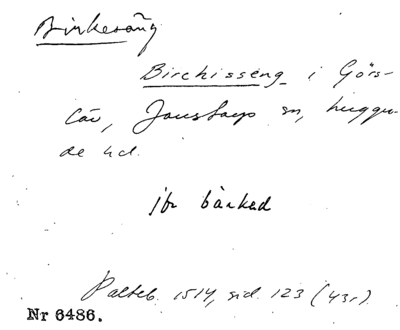 Birkesäng
Birchisseng i Görs-
löv, Jonstorps sn, Luggu-
de hd.
jfr bänkad
Palteb. 1514, sid. 123 (43r)
Nr 6486.